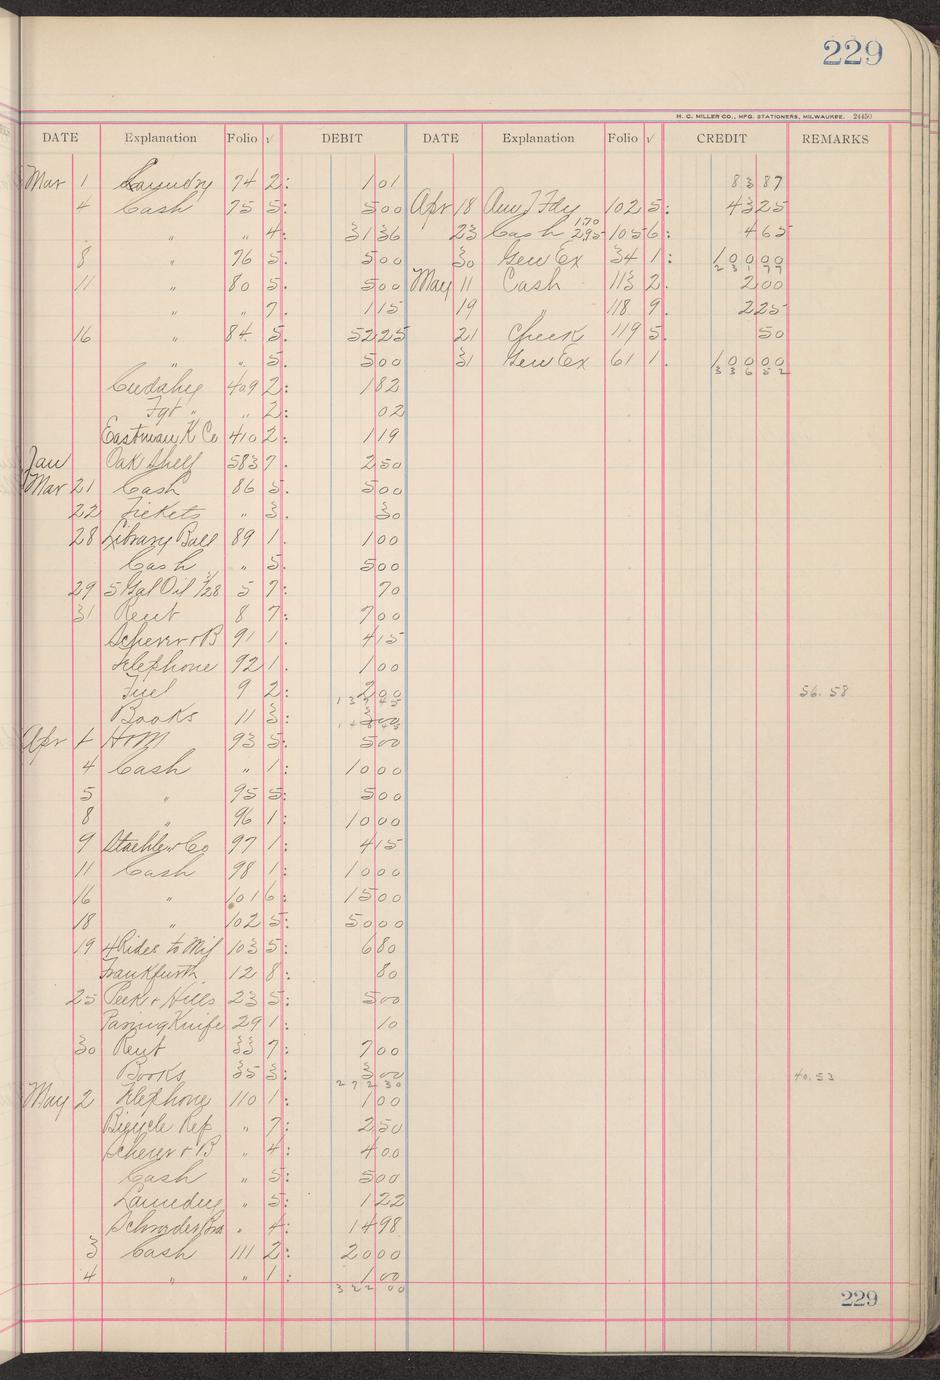 229
H. C. MILLER CO., MFG. STATIONERS, MILWAUKEE. 24450
DATE Explanation Folio √ DEBIT DATE Explanation Folio √ CREDIT REMARKS
Mar 1 Laundry 74 2: 1 01 83 87
4 Cash 75 5: 5 00 Apr 18 102 5: 43 25
" " 4: 31 36 23 Cash 1.70 2.95 105 6: 4 65
8 " 76 5. 5 00 30 Gen Ex 34 1: 100 00
231 77
11 " 80 5. 5 00 May 11 Cash 113 2. 2 00
" " 7. 1 15 19 " 118 9. 2 25
16 " 84 5. 52 25 21 Check 119 5. 50
" " 5. 5 00 31 Gen Ex 61 1. 100 00
336 52
Cudahy 409 2: 1 82
Fgt " " 2: 02
Eastman K Co 410 2: 1 19
Jan Oak Shelf 583 7. 2 50
Mar 21 Cash 86 5. 5 00
22 Tickets " 3. 30
28 Library Ball 89 1. 1 00
Cash " 5. 5 00
29 5 Gal Oil 3/28 5 7: 70
31 Rent 8 7: 7 00
Scherer & B 91 1. 4 15
Telephone 92 1. 1 00
Fuel 9 2: 2 00 56.58
Books 11 3: 3 00
Apr 1 HOM 93 5: 5 00
4 Cash " 1: 10 00
5 " 95 5: 5 00
8 " 96 1: 10 00
9 Staehler & Co 97 1: 4 15
11 Cash 98 1: 10 00
16 " 101 6: 15 00
18 " 102 5: 50 00
19 4 Rides to Mil 103 5: 6 80
Frankfurth 12 8: 80
25 Peek & Hills 23 5: 5 00
Paring Knife 29 1: 10
30 Rent 33 7: 7 00
Books 35 3: 3 00 40.53
272 30
May 2 Telephone 110 1: 1 00
Bicycle Rep " 7: 2 50
Scherer & B " 4: 4 00
Cash " 5: 5 00
Laundry " 5: 1 22
Schroeder Bra " 4: 14 98
3 Cash 111 2: 20 00
4 " " 1: 1 00
322 00
229